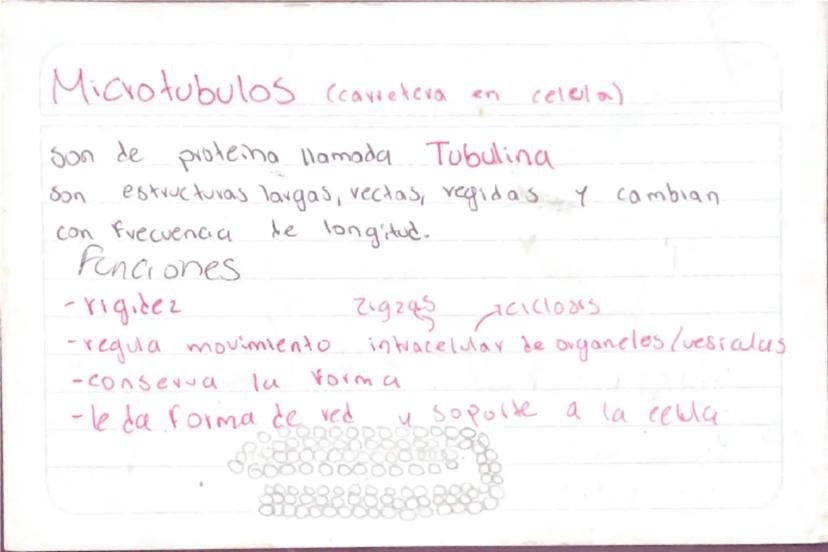 Microtubulos (carretera en celula)
son de proteina llamada Tubulina
son estructuras largas, rectas, regidas y cambian
con frecuencia de longitud.
Funciones
-rigidez zigzas
-regula movimiento intracelular de organelos/vesiculas
-conserva la forma
-le da forma de red y soporte a la celula